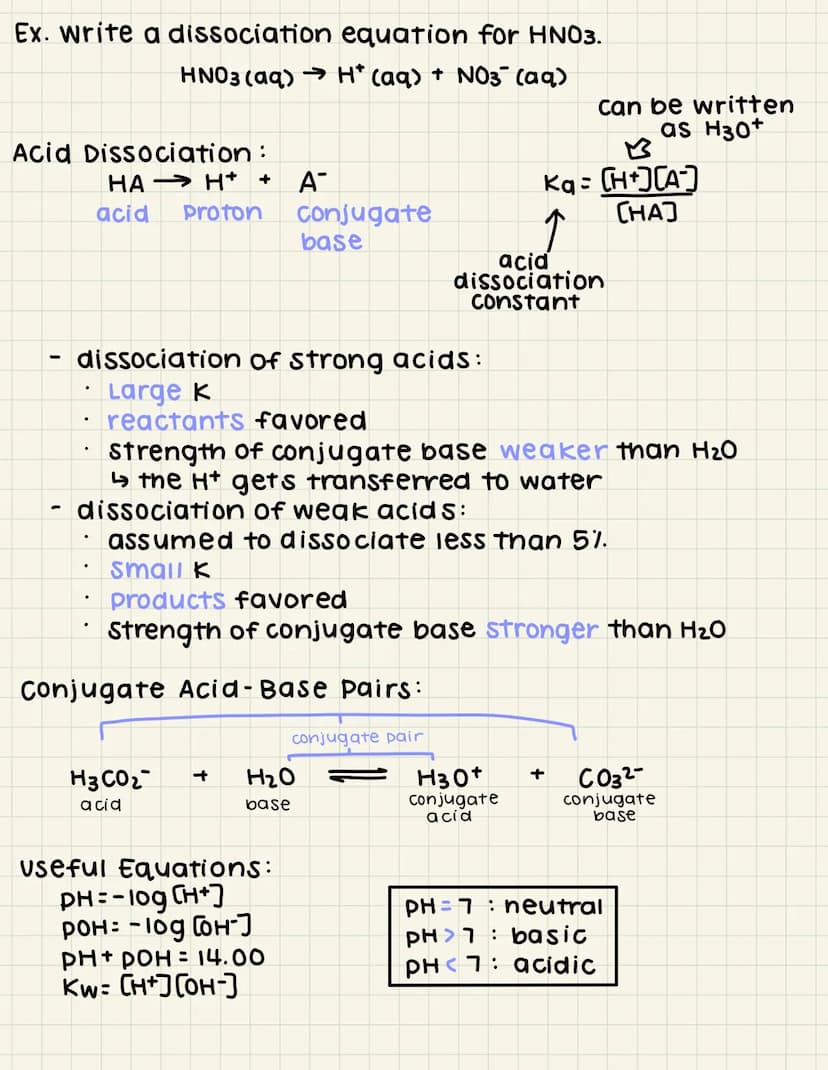 Ex. Write a dissociation equation for HNO3.
HNO3 (aq) → H⁺ (aq) + NO3⁻ (aq)
can be written
as H3O⁺
Acid Dissociation:
HA → H⁺ + A⁻
acid proton conjugate
base
Ka = [H⁺][A⁻]
[HA]
acid
dissociation
constant
- dissociation of strong acids:
· Large K
· reactants favored
· strength of conjugate base weaker than H2O
↳ the H⁺ gets transferred to water
- dissociation of weak acids:
· assumed to dissociate less than 5%.
· small K
· products favored
· strength of conjugate base stronger than H2O
Conjugate Acid-Base Pairs:
conjugate pair
H3CO2⁻ + H2O ⇌ H3O⁺ + CO3²⁻
acid base conjugate acid conjugate base
Useful Equations:
pH = -log[H⁺]
pOH = -log[OH⁻]
pH + pOH = 14.00
Kw = [H⁺][OH⁻]
pH = 7 : neutral
pH > 7 : basic
pH < 7 : acidic